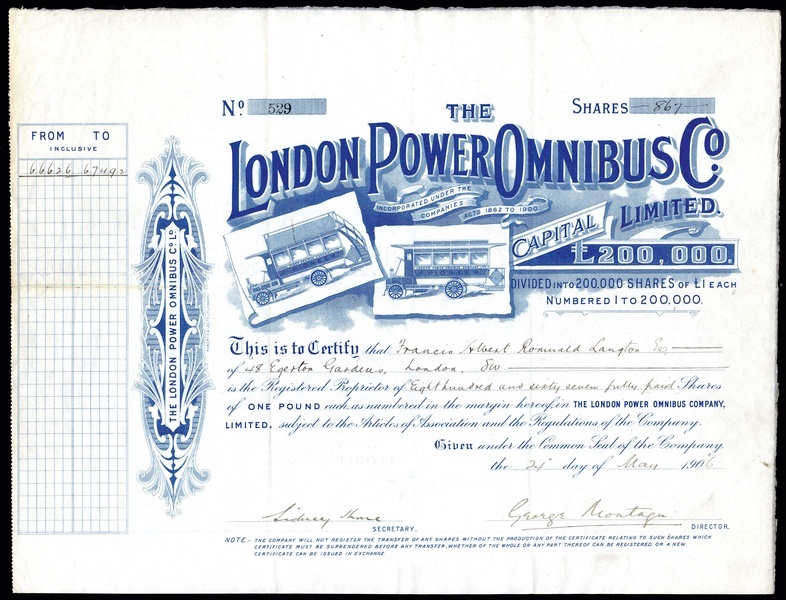 No. 529
SHARES 867
THE
LONDON POWER OMNIBUS Co.
LIMITED.
INCORPORATED UNDER THE
COMPANIES ACTS 1862 TO 1900
CAPITAL £200,000.
DIVIDED INTO 200,000 SHARES OF £1 EACH
NUMBERED 1 TO 200,000.
FROM TO
INCLUSIVE
66626 67492
THE LONDON POWER OMNIBUS Co. LD.
PIONEER
This is to Certify that Francis Albert Romuald Langton Esq
of 48 Egerton Gardens, London, SW.
is the Registered Proprietor of Eight hundred and sixty seven fully paid Shares
of ONE POUND each, as numbered in the margin hereof, in THE LONDON POWER OMNIBUS COMPANY,
LIMITED, subject to the Articles of Association and the Regulations of the Company.
Given under the Common Seal of the Company
the day of May 1906
Sidney
George Montagu
SECRETARY.
DIRECTOR.
NOTE.– THE COMPANY WILL NOT REGISTER THE TRANSFER OF ANY SHARES WITHOUT THE PRODUCTION OF THE CERTIFICATE RELATING TO SUCH SHARES WHICH
CERTIFICATE MUST BE SURRENDERED BEFORE ANY TRANSFER, WHETHER OF THE WHOLE OR ANY PART THEREOF CAN BE REGISTERED OR A NEW
CERTIFICATE CAN BE ISSUED IN EXCHANGE.